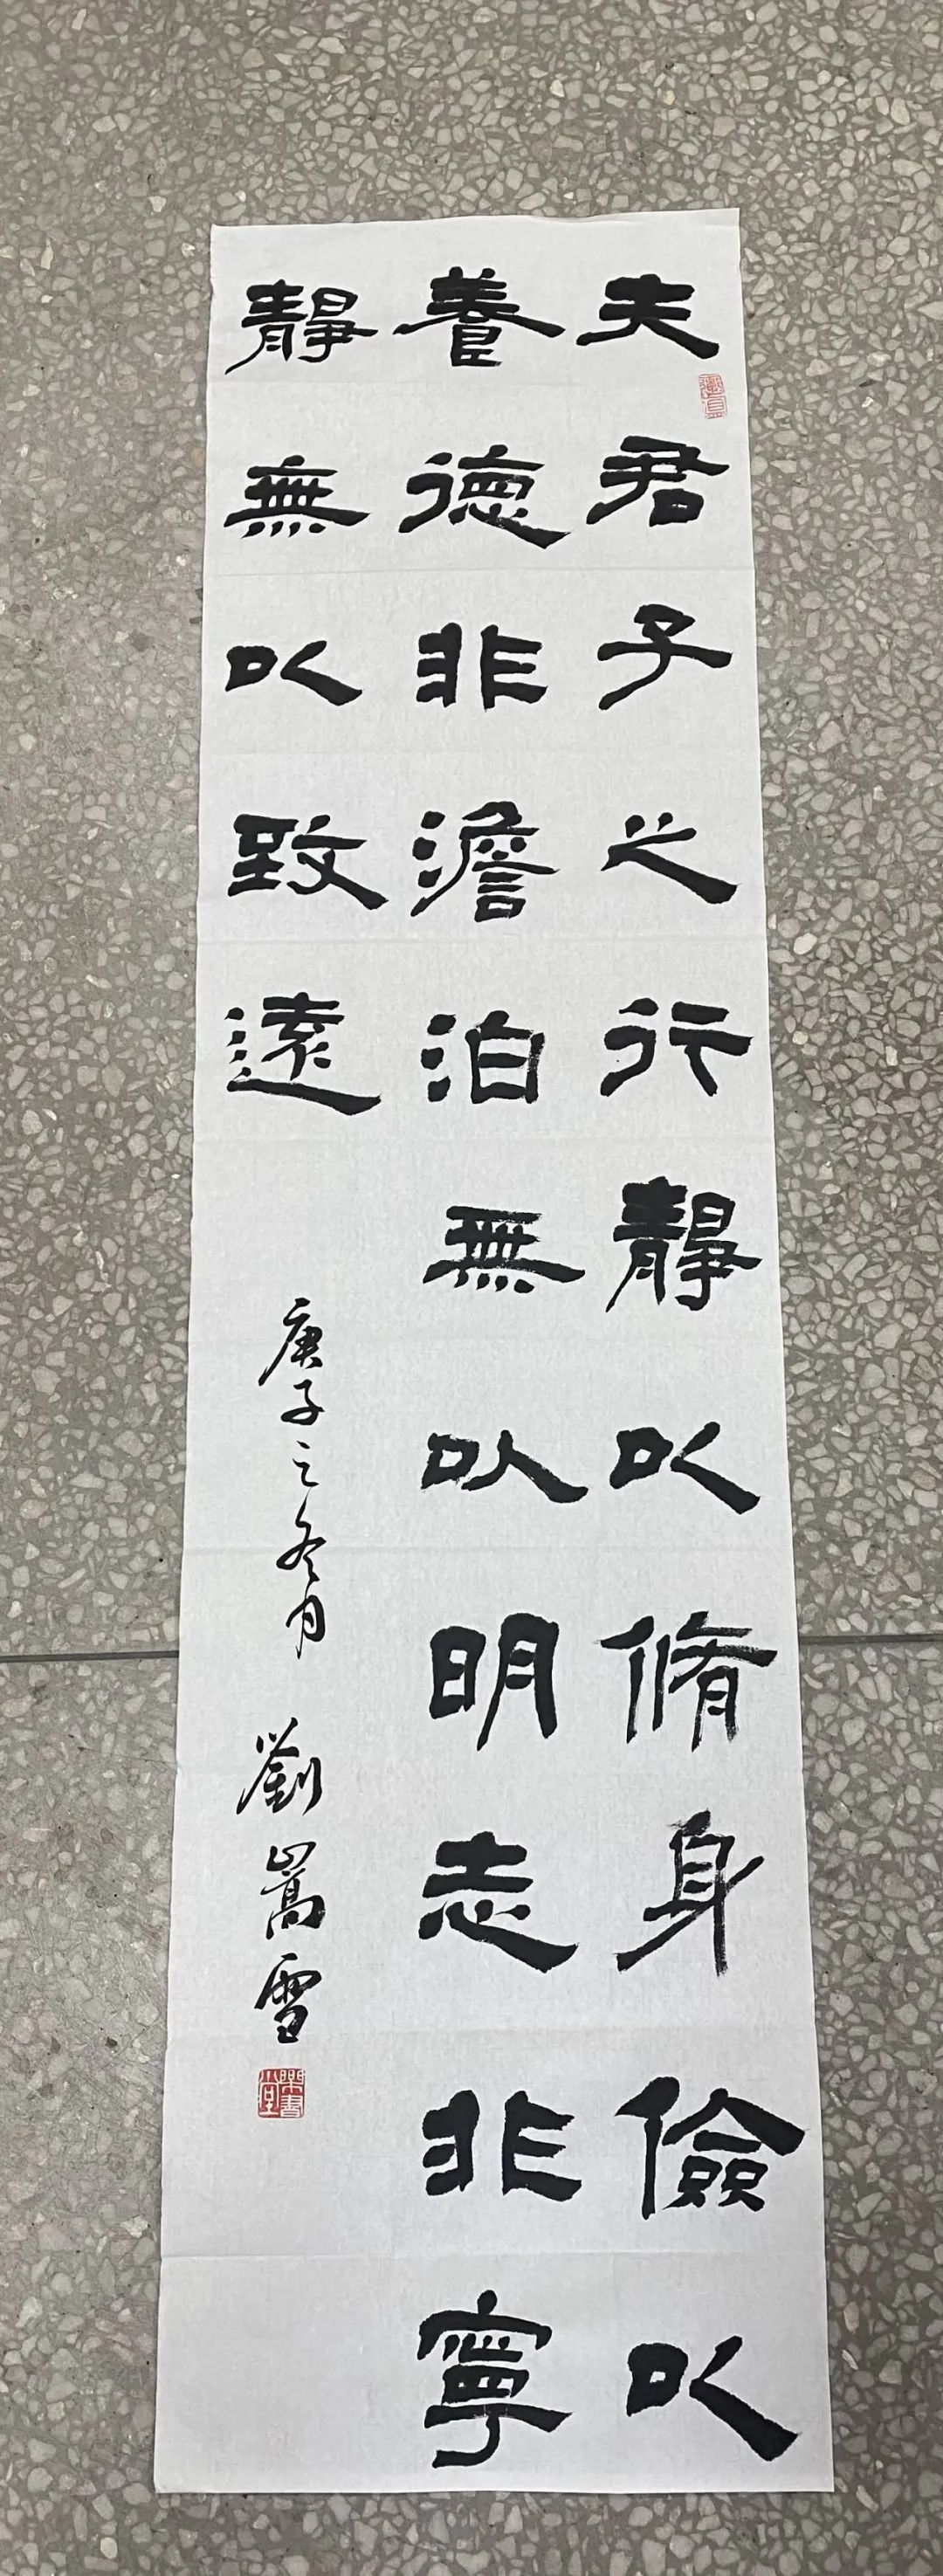 夫君子之行靜以脩身儉以
養德非澹泊無以明志非寧
靜無以致遠
庚子之冬月 劉嵩雪
樂書堂